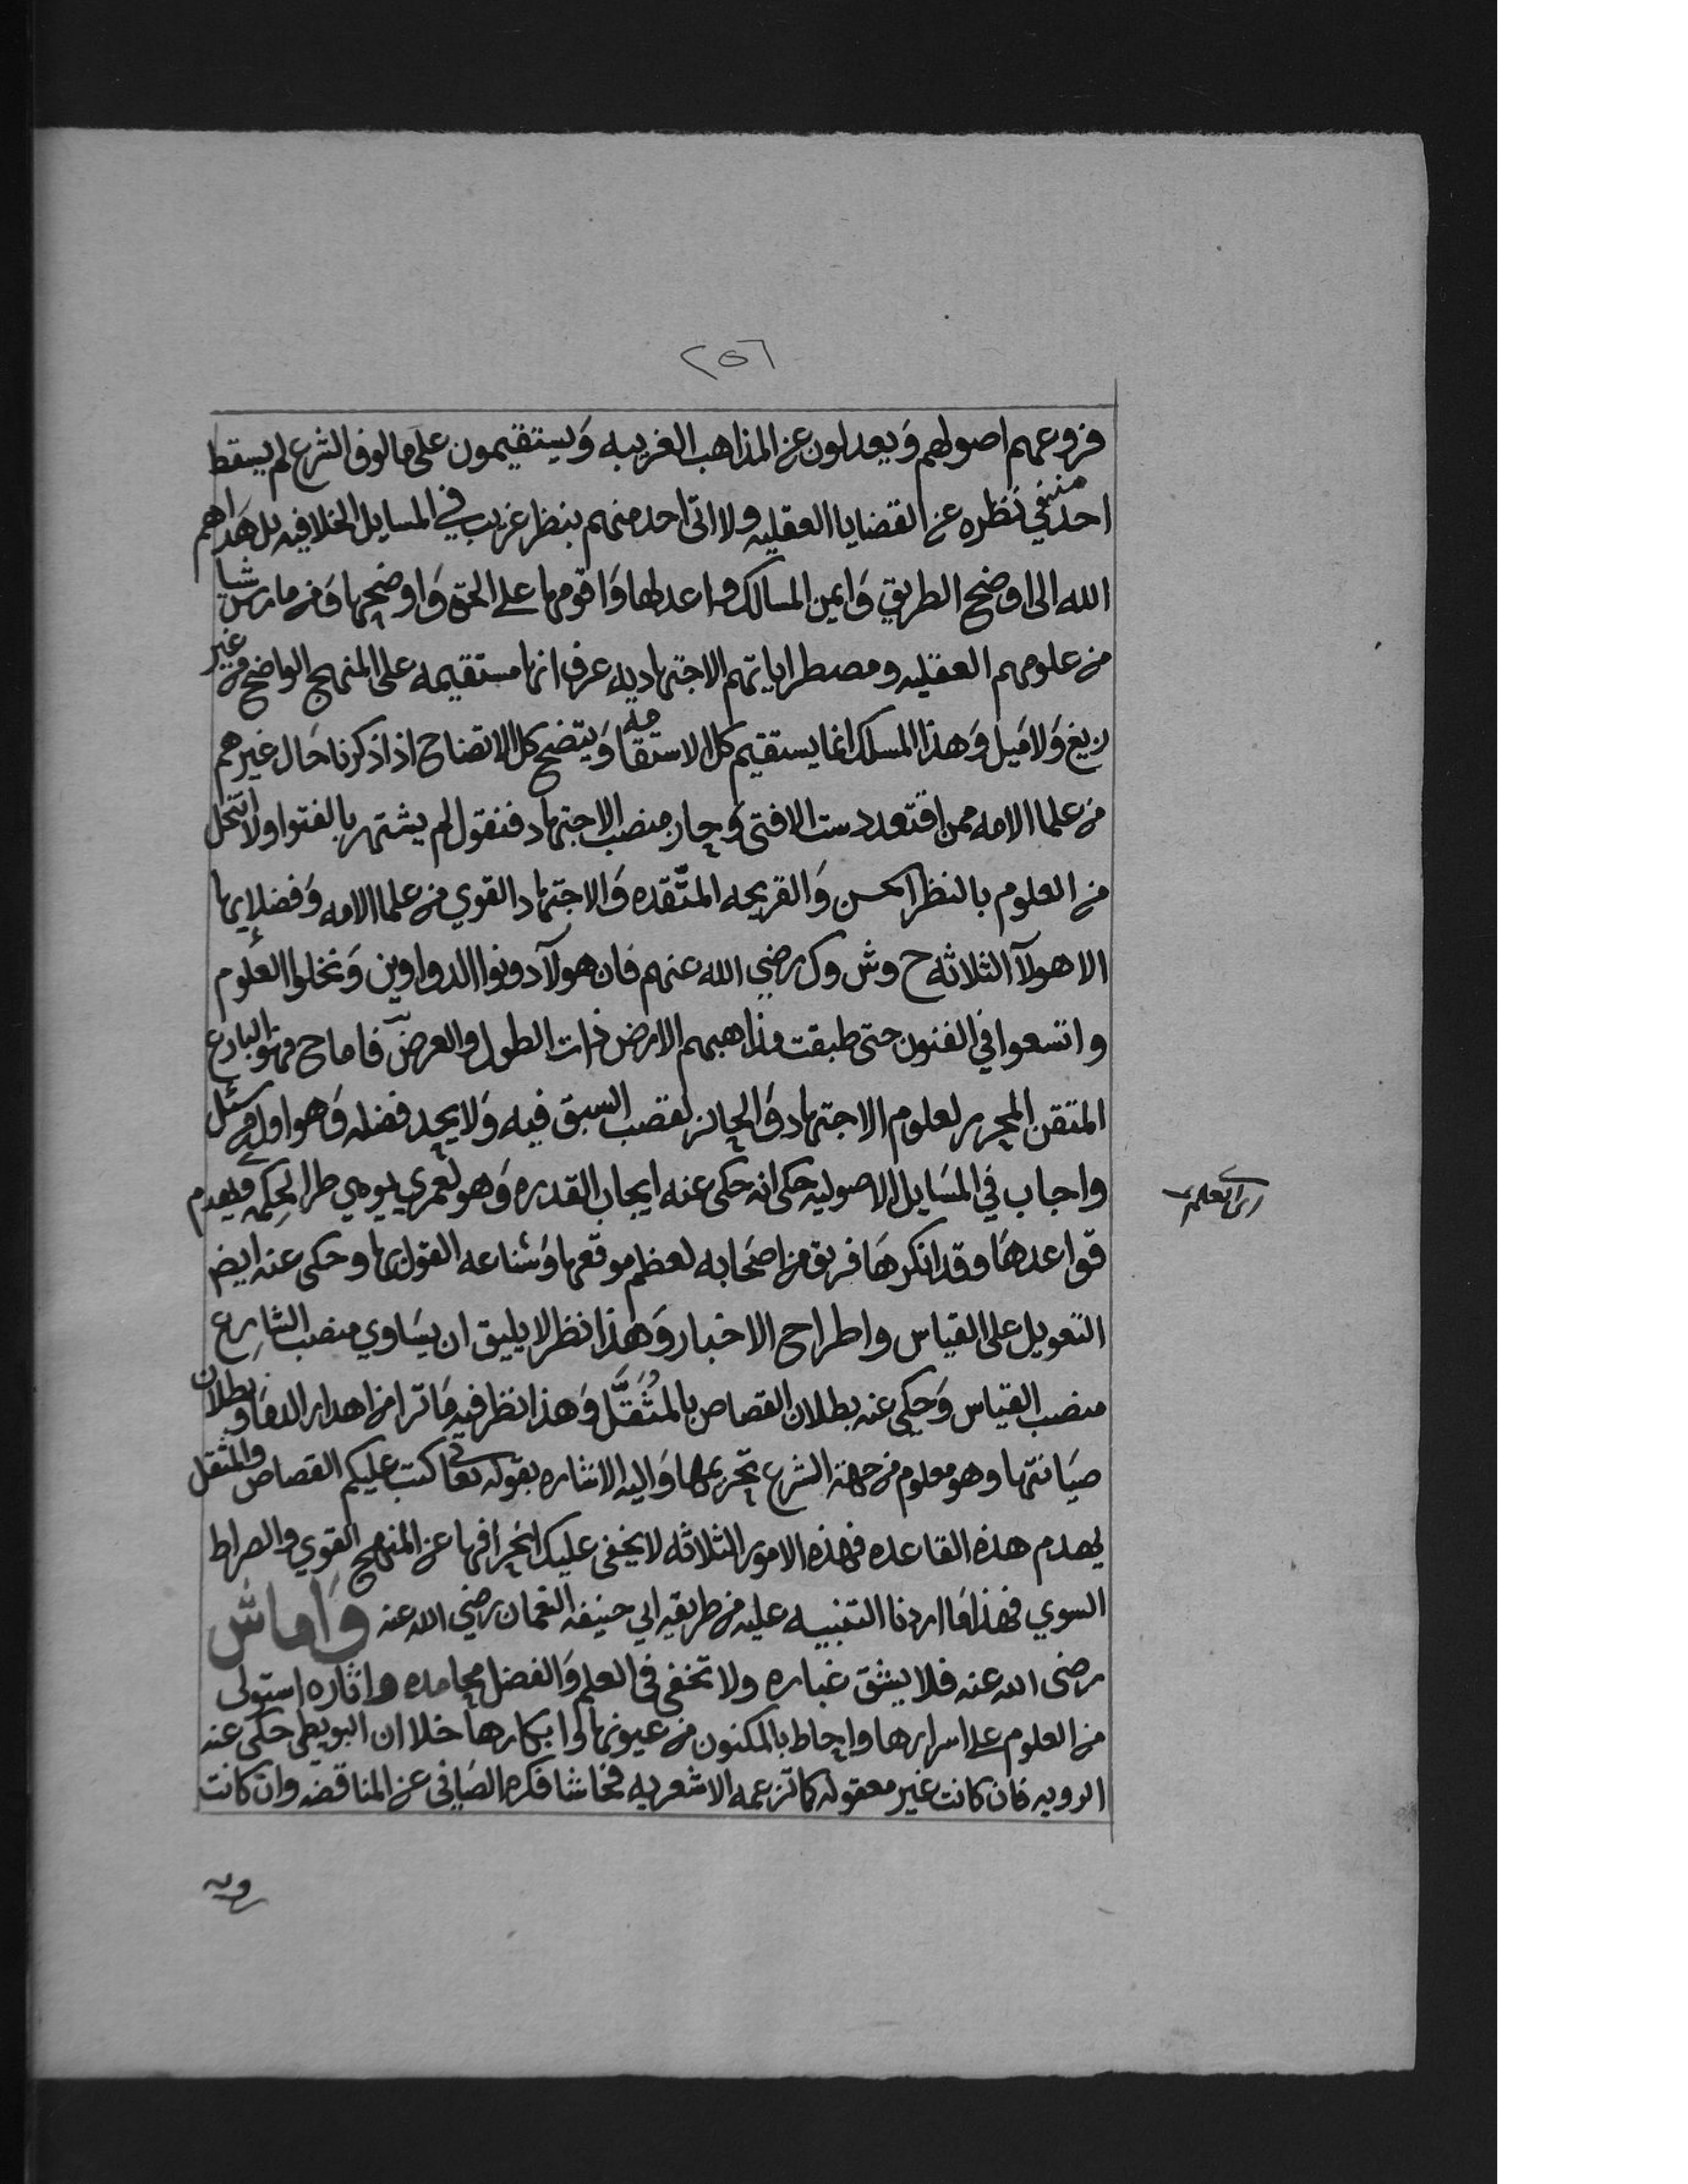 ٢٥٦
فروعهم اصولهم وَيعدلون عن المذاهب الغريبه وَيستقيمون على مالوف الشرع لم يسقط
احد منهم في نظره عن القضايا العقليه ولا اتى احد منهم بنظر غريب في المسايل الخلافيه بل هَداهم
الله الى اوضح الطريق وَايمن المسالك واعدلها وَاقومها على الحق وَاوضحها وَمن مارس شيا
من علومهم العقليه ومضطراباتهم الاجتهاديه عرف انها مستقيمه على المنهج الواضح من غير
زيغ وَلا مَيل وَهذا المسلك انما يستقيم كل الاستقامه وَيتضح كل الاتضاح اذا ذكرنا حَال غيرهم
من علما الامه ممن اقتعد دست الافتى وَحاز منصب الاجتهاد فنقول لم يشتهر بالفتوا ولا انتحل
من العلوم بالنظر الحسن وَالقريحه المتّقده وَالاجتهاد القوي من علما الامه وَفضلايها
الا هولآ الثلاثه ح وش وك رضي الله عنهم فان هولآ دونوا الدواوين وَنخلوا العلوم
واتسعوا في الفنون حتى طبقت مذاهبهم الارض ذات الطول والعرض فاما ح فهو البارع
المتقن المحرر لعلوم الاجتهاد وَالحائز لقصب السبق فيه وَلا يجحد فضله وَهو اول من سئل
واجاب في المسَايل الاصوليه حكى انه حكى عنه ايجاب القدره وَهو لعمري يومي طرا لحكمه ويهدم
قواعدهَا وقد انكرهَا فريق من اصحَابه لعظم موقعها وَشناعه القول بها وحكى عنه ايض
التعويل على القياس واطراح الاخبار وَهذا نظر لا يليق ان يسَاوي منصب الشارع
منصب القياس وَحكي عنه بطلان القصاص بالمُثَقَّل وَهذا نظر فيه مَا ترا من اهدار الدمَا وبطلان
صيَانتها وهو معلوم من جهة الشرع تحريمها وَاليه الاشاره بقوله تعالى كتب عليكم القصاص والمثقل
يهدم هذه القاعده فهذه الامور الثلاثه لا يخفى عليك انحرافها عن المنهج القوي والصراط
السوي فهذا مَا اردنا التنبيه عليه من طريقه ابي حنيفه النعمان رضي الله عنه وَاما ش
رضى الله عنه فلا يشق غباره ولا تخفى في العلم وَالفضل محامده واثاره استولى
من العلوم على اسرارها واحاط بالمكنون من عيونها وابكارها خلا ان البويطي حكى عنه
الرويه فان كانت غير معقوله كما تزعمه الاشعريه فحاشا فكره الصَافى عن المناقضه وان كانت
رويه